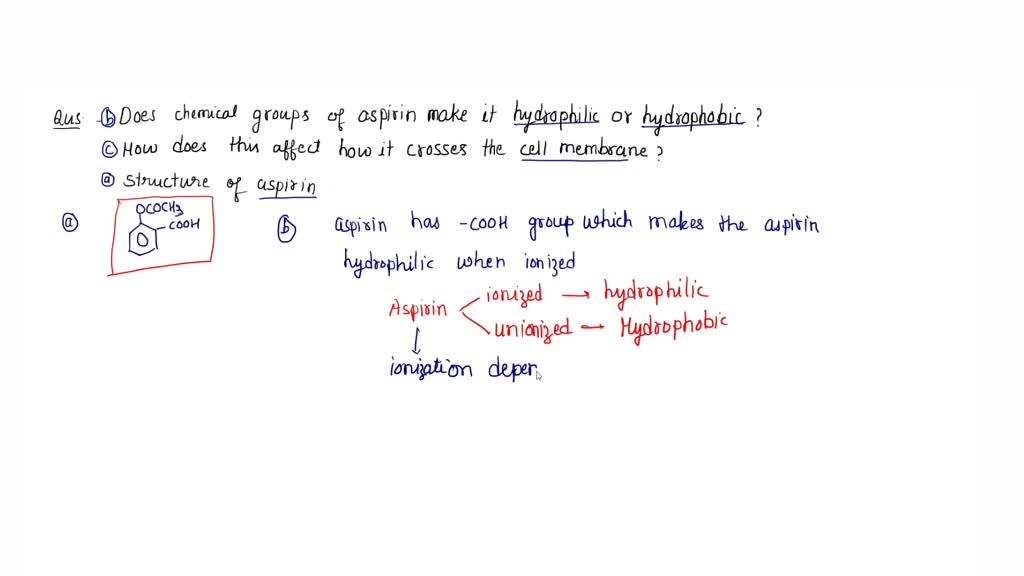 Qus ⓑ Does chemical groups of aspirin make it hydrophilic or hydrophobic ?
ⓒ How does this affect how it crosses the cell membrane ?
ⓐ structure of aspirin
ⓐ
OCOCH3
COOH
ⓑ aspirin has -COOH group which makes the aspirin
hydrophilic when ionized
Aspirin
ionized → hydrophilic
unionized → Hydrophobic
ionization deper